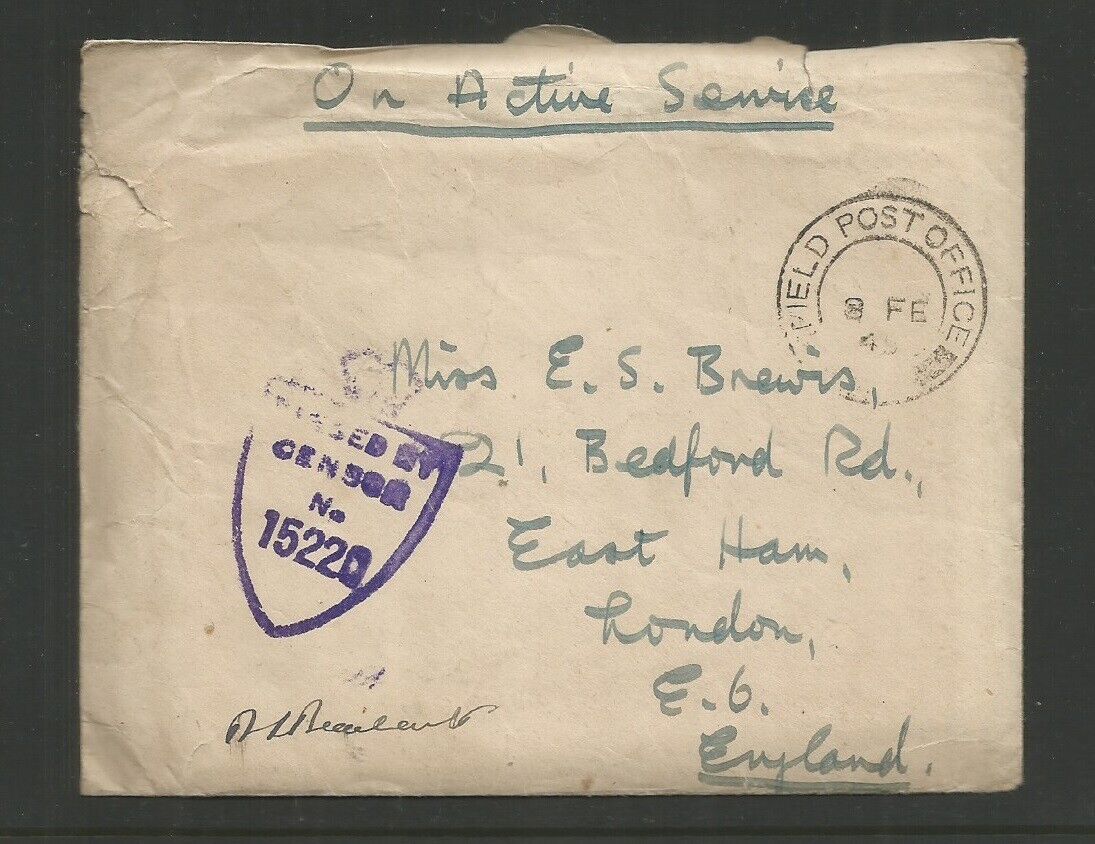 On Active Service
FIELD POST OFFICE
8 FE
45
Miss E. S. Brewis,
21, Bedford Rd.,
East Ham,
London,
E.6.
England.
PASSED BY
CENSOR
No
15220